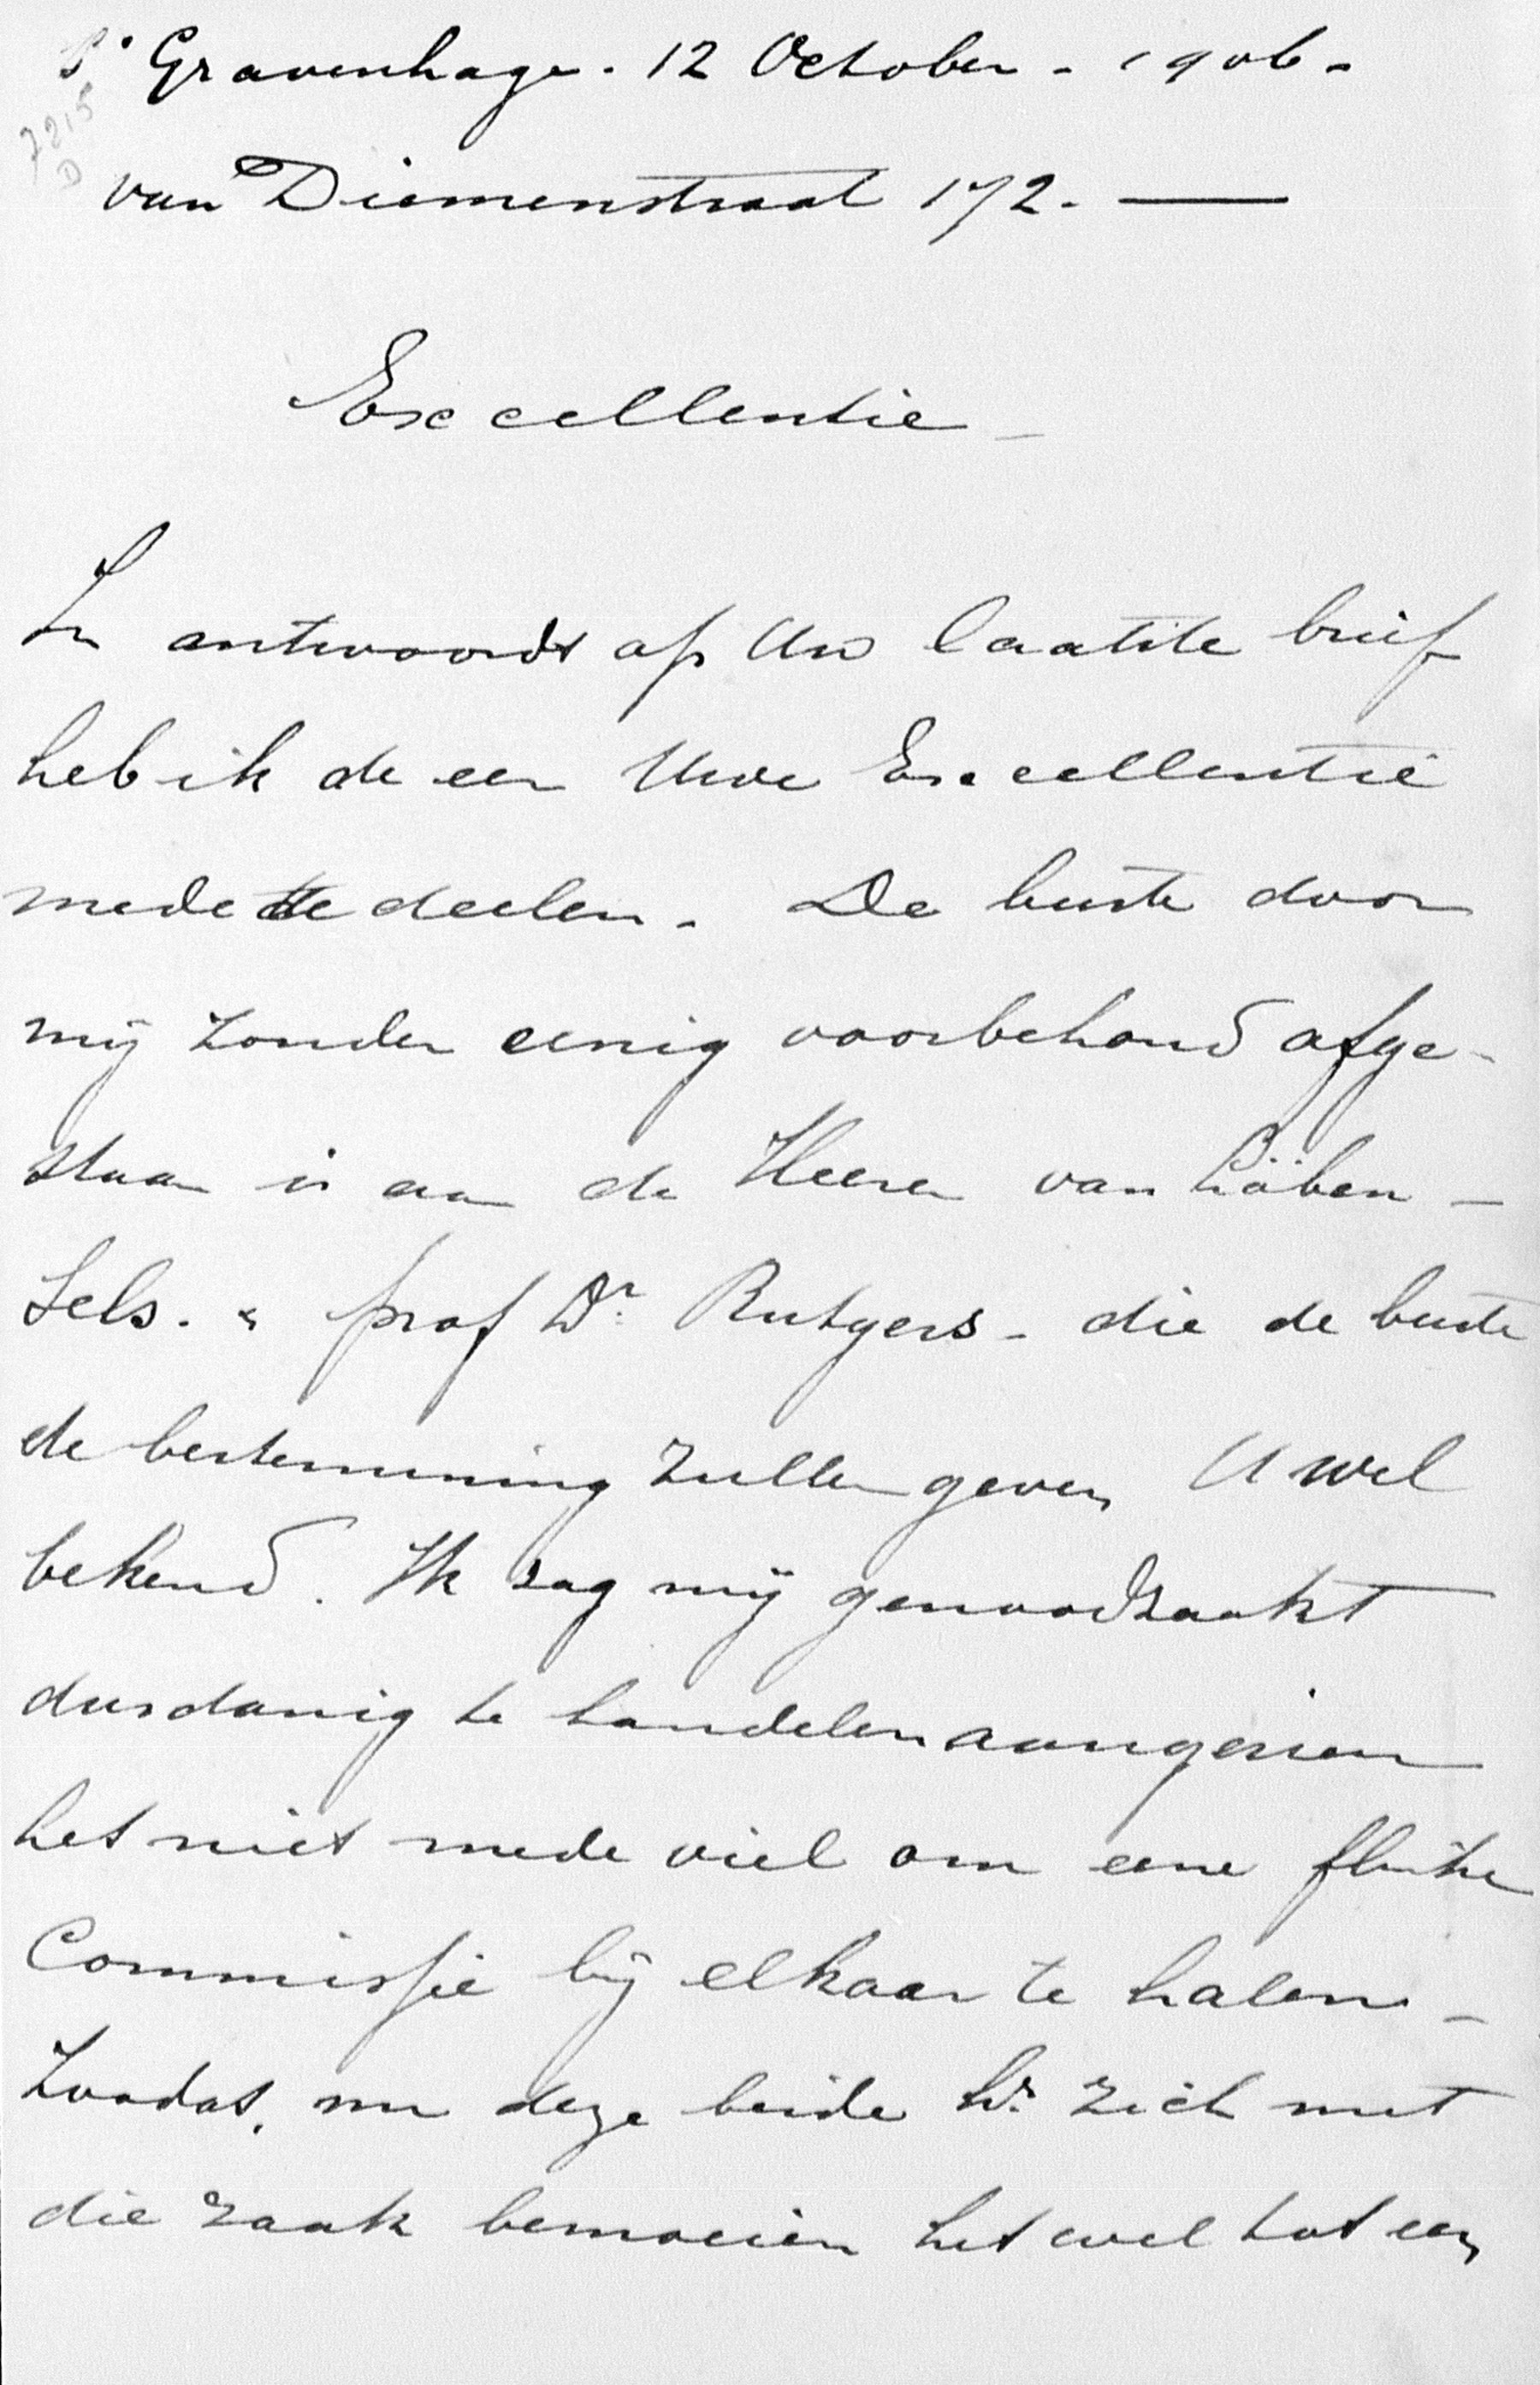 s' Gravenhage. 12 October - 1906 -
7215
D
van Diemenstraat 172. —
Excellentie -
In antwoordt op Uw laatste brief
heb ik de eer Uwe Excellentie
mede te deelen. De buste door
mij zonder eenig voorbehoud afge-
staan is aan de Heeren van Löben -
Sels. & prof Dr. Rutgers - die de buste
de bestemming zullen geven U wel
bekend. Ik zag mij genoodzaakt
dusdanig te handelen aangesien
het niet mede viel om eene flinke
Commissie bij elkaar te halen -
Zoodat, nu deze beide Hr. zich met
die zaak bemoeien het wel tot een